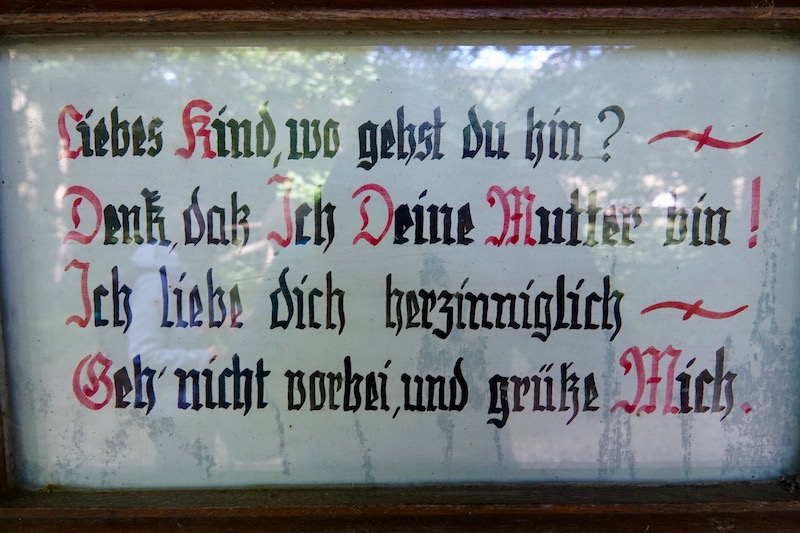 Liebes Kind, wo gehst du hin?
Denk, daß Ich Deine Mutter bin!
Ich liebe dich herzinniglich
Geh' nicht vorbei, und grüße Mich.